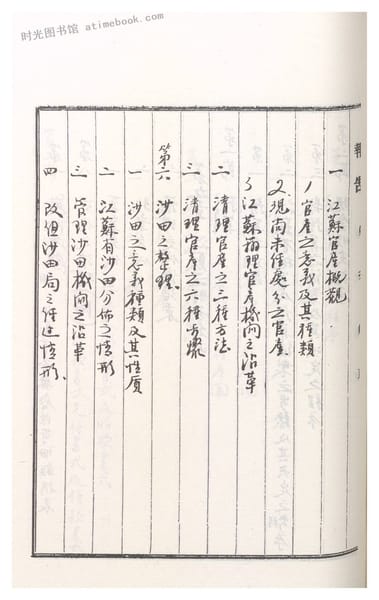 时光图书馆 atimebook.com
報告
一 江蘇官產概觀
1 官產之意義及其種類
2 現尚未經處分之官產
3 江蘇清理官產機関之沿革
二 清理官產之三種方法
三 清理官產之六種步驟
第六 沙田之整理
一 沙田之意義種類及其性质
二 江蘇有沙田分佈之情形
三 管理沙田機関之沿革
四 改组沙田局之经过情形